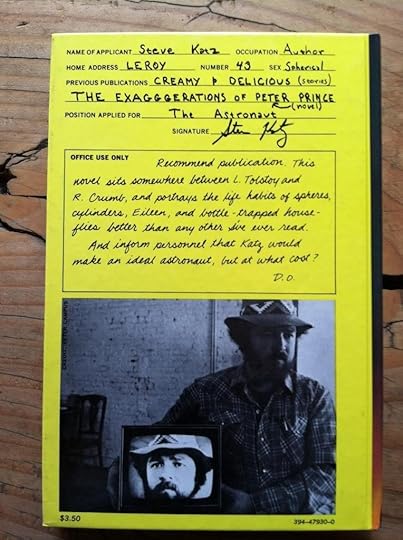 NAME OF APPLICANT Steve Katz OCCUPATION Author
HOME ADDRESS LEROY NUMBER 49 SEX Spherical
PREVIOUS PUBLICATIONS CREAMY & DELICIOUS (stories)
THE EXAGGGERATIONS OF PETER PRINCE (novel)
POSITION APPLIED FOR The Astronaut
SIGNATURE Steve Katz
OFFICE USE ONLY
Recommend publication. This
novel sits somewhere between L. Tolstoy and
R. Crumb, and portrays the life habits of spheres,
cylinders, Eileen, and bottle-trapped house-
flies better than any other I've ever read.
And inform personnel that Katz would
make an ideal astronaut, but at what cost?
D.O.
$3.50
394-47930-0